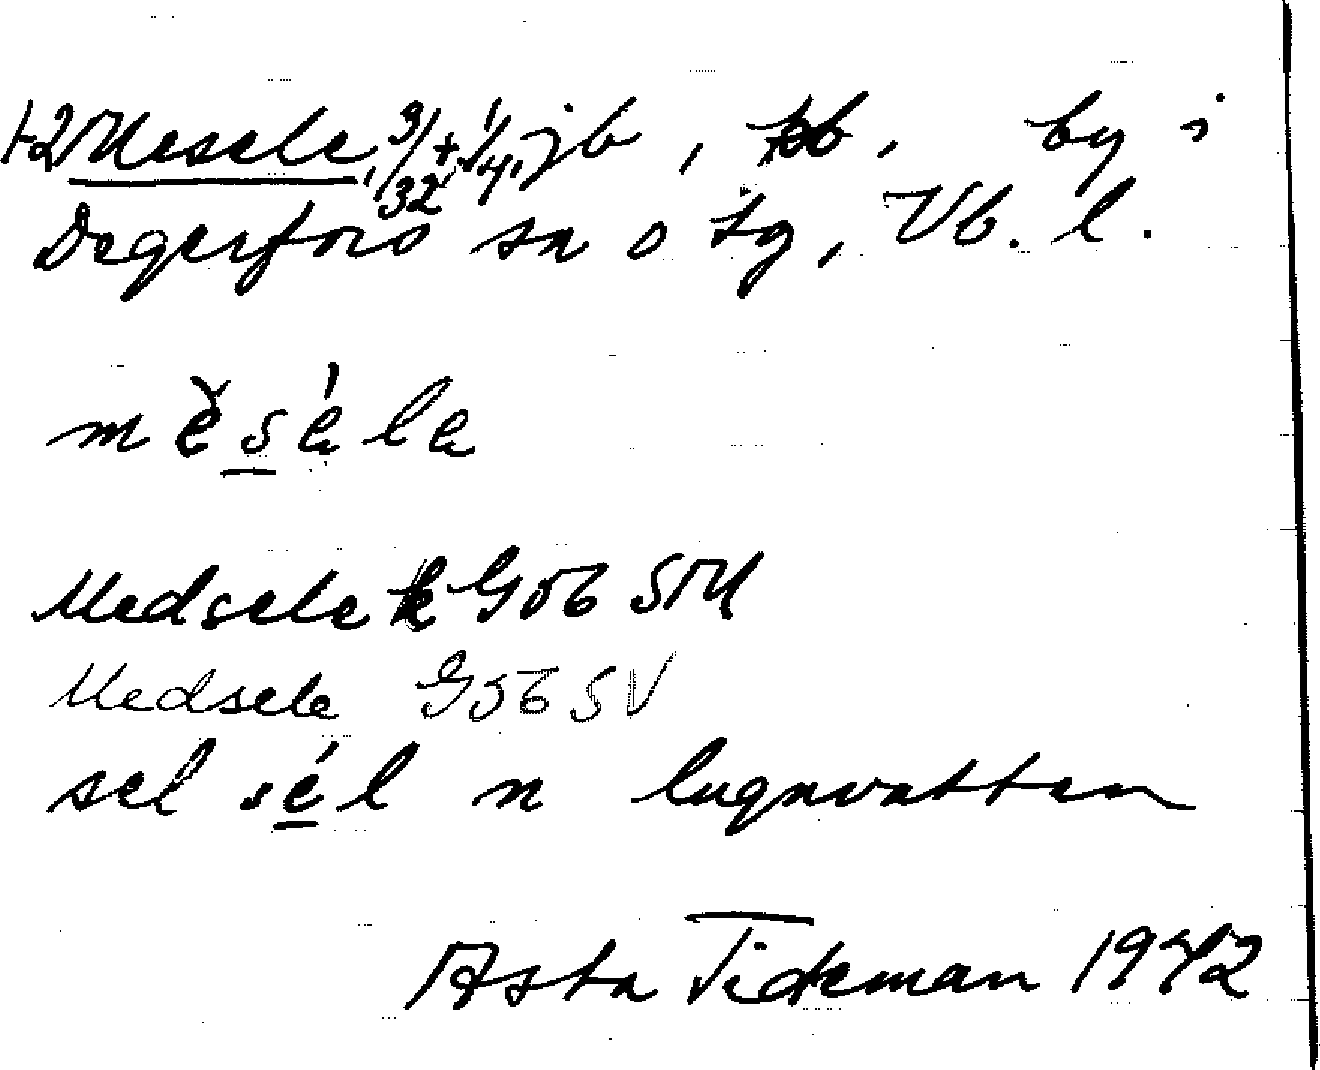 1-2 Mesele, 3/32 + 1/4, jb, by i
Degerfors sn o tg, Vb. l.
mĕsélɑ
Medsele G56 SM
Medsele G56 SV
sel sél n lugnvatten
Asta Tideman 1942